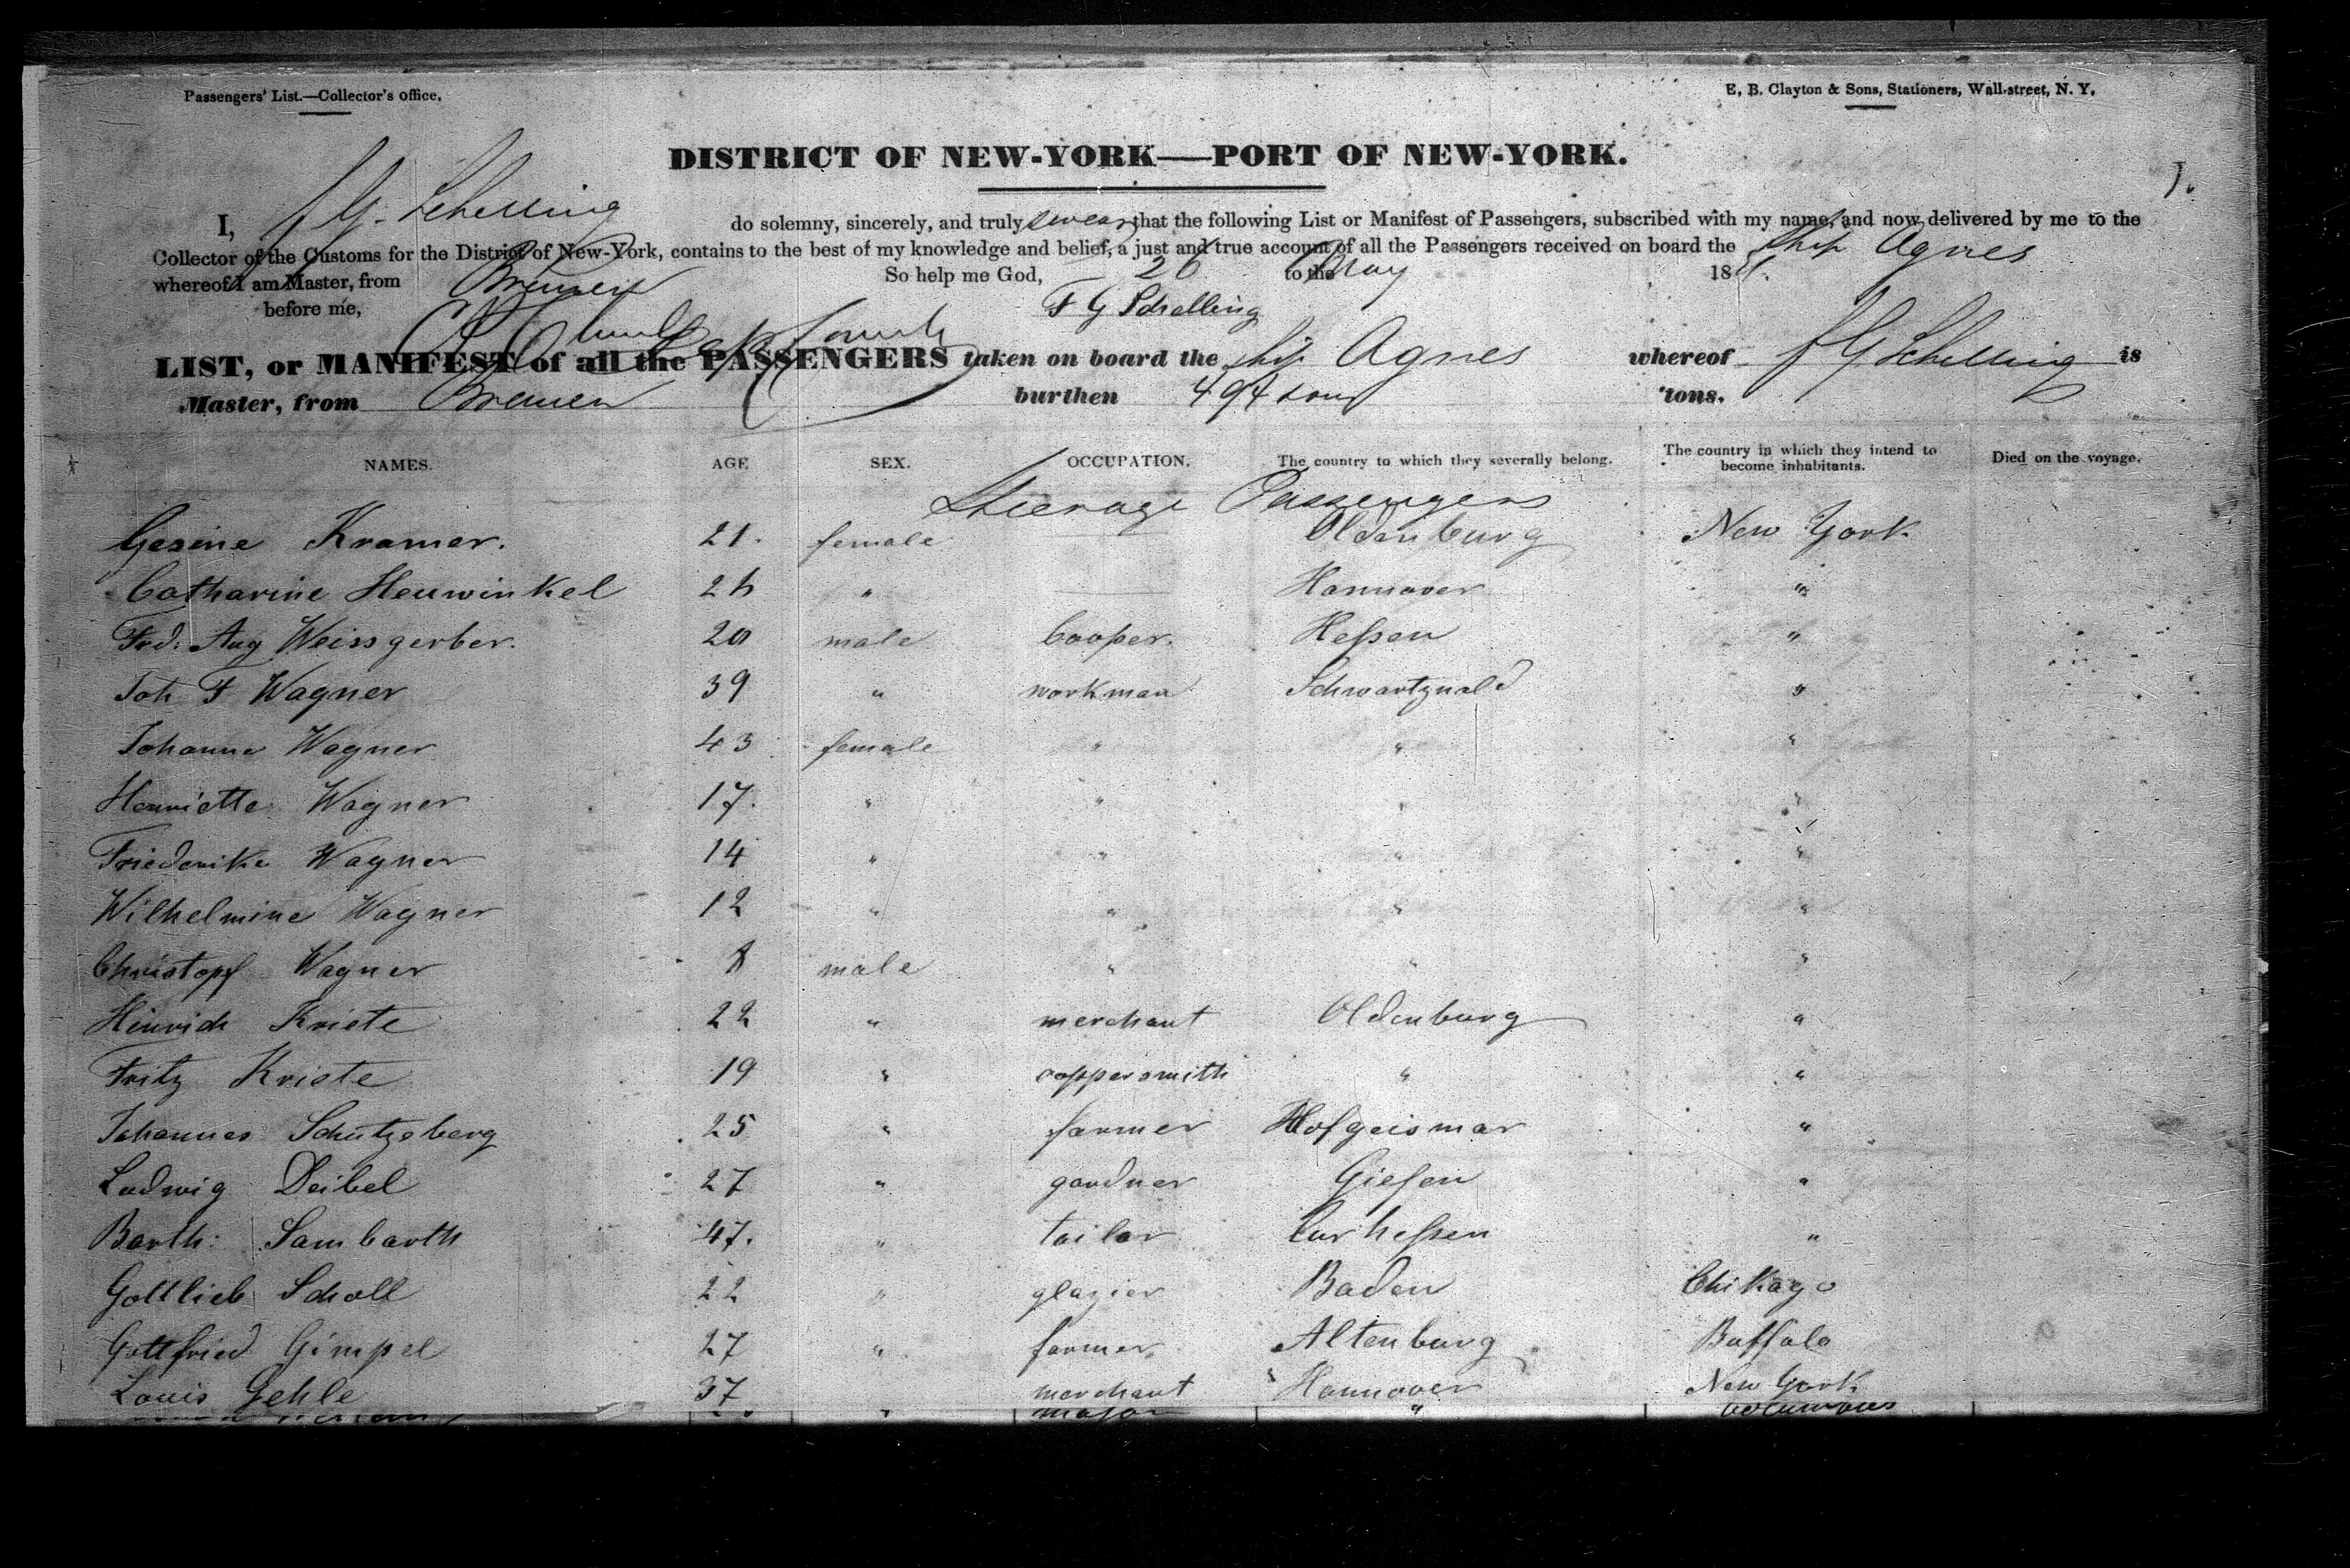 Passengers' List.—Collector's office,
E, B. Clayton & Sons, Stationers, Wall-street, N. Y,
DISTRICT OF NEW-YORK—PORT OF NEW-YORK.
1.
I, F G. Schelling do solemny, sincerely, and truly swear that the following List or Manifest of Passengers, subscribed with my name, and now delivered by me to the
Collector of the Customs for the District of New-York, contains to the best of my knowledge and belief, a just and true account of all the Passengers received on board the Ship Agnes
whereof I am Master, from Bremen So help me God, to the 26 May 18
before me, F G Schelling
LIST, or MANIFEST of all the PASSENGERS taken on board the ship Agnes whereof F G Schelling is
Master, from Bremen burthen 494 tons tons.
NAMES. AGE SEX. OCCUPATION. The country to which they severally belong. The country in which they intend to become inhabitants. Died on the voyage.
Steerage Passengers
Gesine Kramer. 21. female Oldenburg New York
Catharine Heuwinkel 26 " Hannover "
Frd: Aug Weissgerber. 20 male Cooper. Hessen "
Joh F Wagner 39 " workman Schwartzwald "
Johanne Wagner 43 female " " "
Henriette Wagner 17. " " " "
Friederike Wagner 14 " " " "
Wilhelmine Wagner 12 " " " "
Christopf Wagner 8 male " " "
Hinrich Kriete 22 " merchant Oldenburg "
Fritz Kriete 19 " coppersmith " "
Johannes Schutzeberg 25 " farmer Hofgeismar "
Ludwig Deibel 27 " gardner Giesen "
Barth: Sambarth 47. " tailor Curhessen "
Gottlieb Scholl 22 " glazier Baden Chikago
Gottfried Gimpel 27 " farmer Altenburg Buffalo
Louis Gehle 37 merchant Hannover New York
major " Columbus